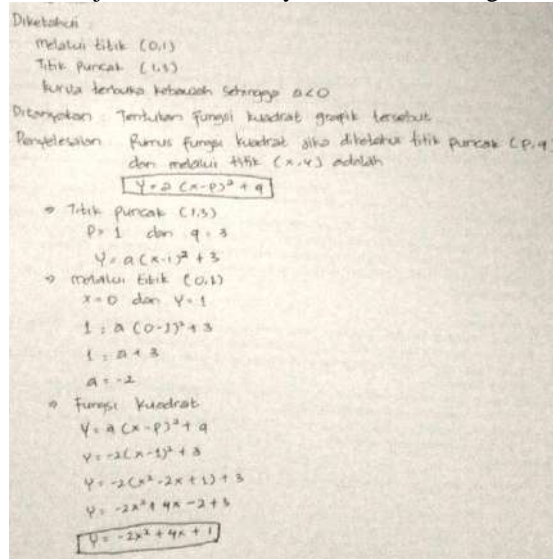 Diketahui :
Melalui titik (0,1)
Titik Puncak (1,3)
kurva terbuka kebawah sehingga a<0
Ditanyakan : Tentukan fungsi kuadrat grafik tersebut
Penyelesaian Rumus fungsi kuadrat jika diketahui titik puncak (P,q)
dan melalui titik (x,y) adalah
y = a (x-p)² + q
→ Titik puncak (1,3)
P = 1 dan q = 3
y = a (x-1)² + 3
→ melalui titik (0,1)
x = 0 dan y = 1
1 = a (0-1)² + 3
1 = a + 3
a = -2
→ Fungsi Kuadrat
y = a (x-p)² + q
y = -2(x-1)² + 3
y = -2(x²-2x+1) + 3
y = -2x² + 4x - 2 + 3
y = -2x² + 4x + 1